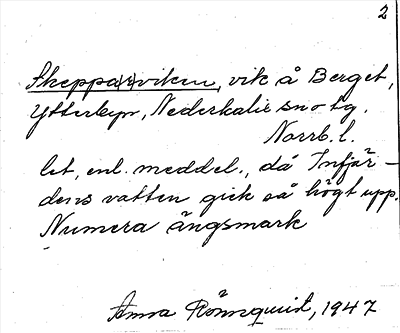 2
Skepparviken, vik å Berget,
Ytterbyn, Nederkalix sn o tg.
Norrb. l.
let, enl. meddel., då Infjär-
dens vatten gick så högt upp.
Numera ängsmark
Anna Rönnquist, 1947